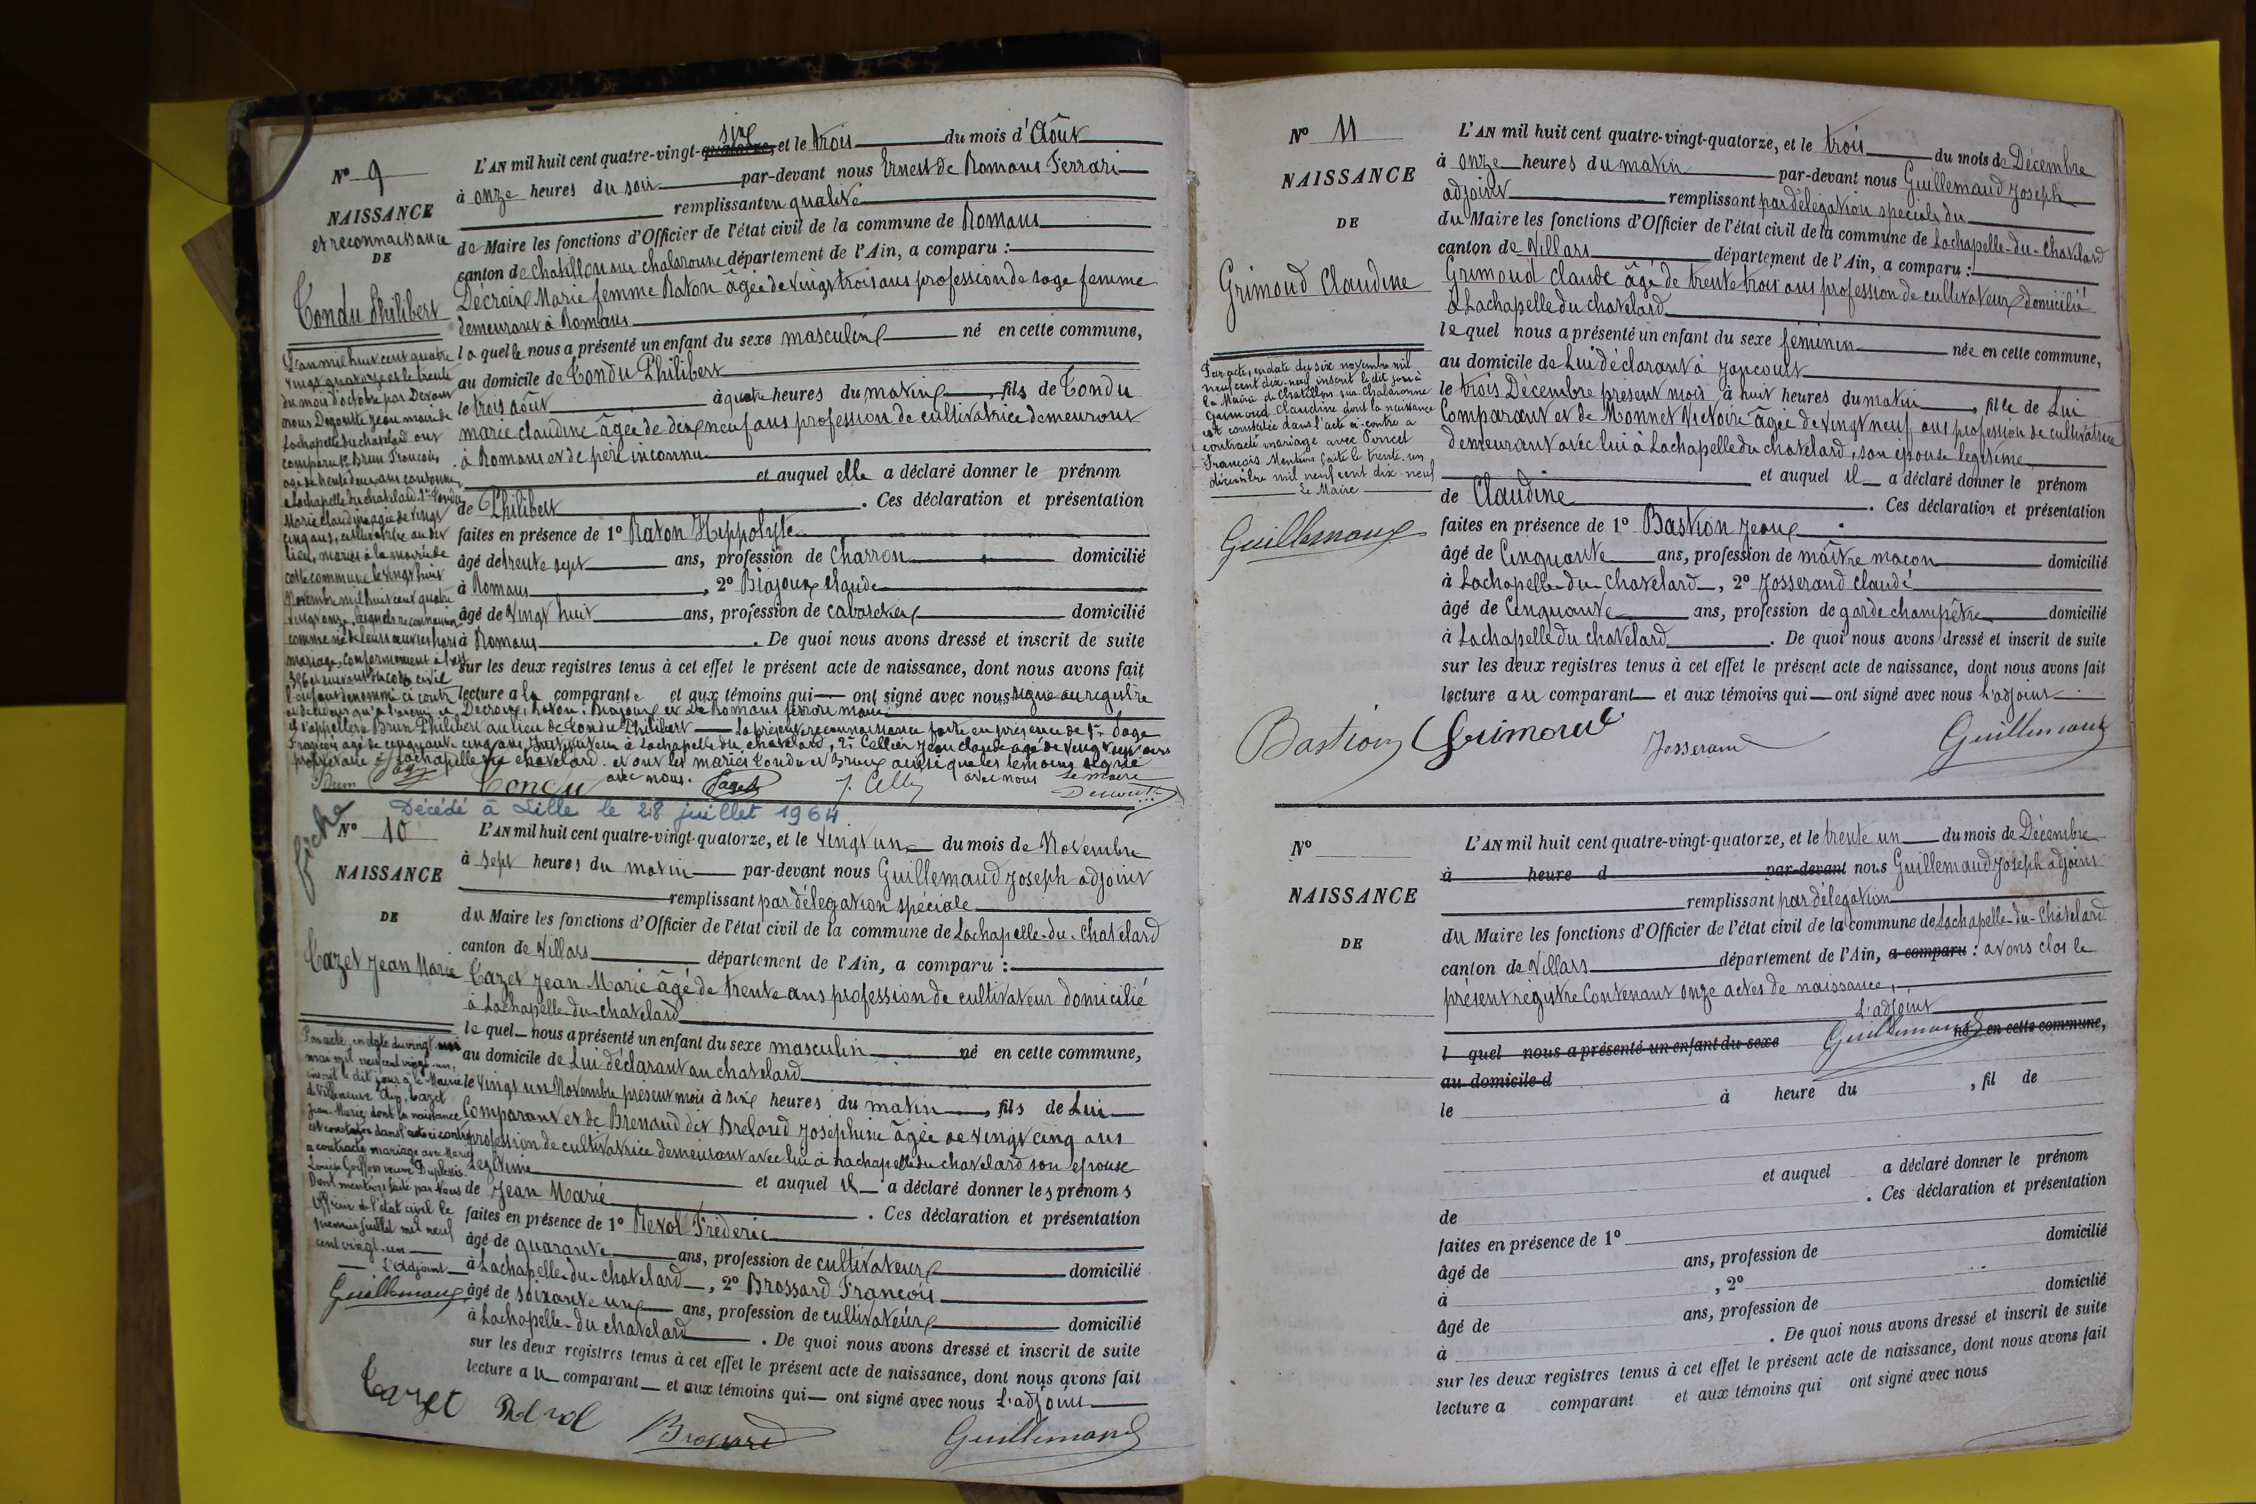 Nº 9
NAISSANCE
et reconnaissance
DE
Tondu Philibert
L'AN mil huit cent quatre-vingt-quatorze, six et le trois du mois d'Août
à onze heures du soir par-devant nous Ernest de Romans Ferrari
remplissant en qualité
de Maire les fonctions d'Officier de l'état civil de la commune de Romans
canton de chatillon sur chalaronne département de l'Ain, a comparu :
Décroix Marie femme Raton âgée de vingt trois ans profession de sage femme
demeurant à Romans
laquelle nous a présenté un enfant du sexe masculin né en cette commune,
au domicile de Tondu Philibert
le trois août à quatre heures du matin, fils de Tondu
marie claudine âgée de dix neuf ans profession de cultivatrice demeurant
à Romans et de père inconnu
et auquel elle a déclaré donner le prénom
de Philibert . Ces déclaration et présentation
faites en présence de 1º Raton Hippolyte
âgé de trente sept ans, profession de charron domicilié
à Romans , 2º Biajoux claude
âgé de vingt huit ans, profession de cabaretier domicilié
à Romans . De quoi nous avons dressé et inscrit de suite
sur les deux registres tenus à cet effet le présent acte de naissance, dont nous avons fait
lecture a la comparante et aux témoins qui ont signé avec nous signé au registre
L'an mil huit cent quatre
vingt quatorze et le trente
du mois d'octobre par Devant
nous maire de
Lachapelle du chatelard ont
comparu 1º Brun François,
âgé de trente deux ans
a Lachapelle du chatelard 2º Tondu
Marie claudine âgée de vingt
cinq ans, cultivatrice au dit
lieu, mariés à la mairie de
cette commune le vingt huit
Novembre mil huit cent quatre
vingt onze, lesquels reconnaissent
comme né de leurs œuvres hors
mariage, conformément à l'art
civil
l'enfant dénommé ci contre
et s'appellera Brun Philibert au lieu de Tondu Philibert La présente reconnaissance faite en présence de 1º Sage
François âgé de cinquante cinq ans instituteur à Lachapelle du chatelard, 2º Cellier Jean claude âgé de vingt
propriétaire à Lachapelle du chatelard. et ont les mariés Tondu et Brun ainsi que les témoins signé
avec nous. avec nous Le maire
Brun Tondu
Décédé à Lille le 28 juillet 1964
fiche
Nº 10
NAISSANCE
DE
Cazet Jean Marie
L'AN mil huit cent quatre-vingt-quatorze, et le vingt un du mois de Novembre
à sept heures du matin par-devant nous Guillemaud Joseph adjoint
remplissant par délégation spéciale
du Maire les fonctions d'Officier de l'état civil de la commune de Lachapelle-du-Chatelard
canton de Villars département de l'Ain, a comparu :
Cazet Jean Marie âgé de trente ans profession de cultivateur domicilié
à Lachapelle-du-chatelard
lequel nous a présenté un enfant du sexe masculin né en cette commune,
au domicile de Lui déclarant au chatelard
le vingt un Novembre présent mois à six heures du matin, fils de Lui
Comparant et de Brenaud dit Breloud Joséphine âgée de vingt cinq ans
profession de cultivatrice demeurant avec lui à Lachapelle du chatelard son épouse
Légitime
et auquel il a déclaré donner les prénoms
de Jean Marie . Ces déclaration et présentation
faites en présence de 1º Revol Fréderic
âgé de quarante ans, profession de cultivateur domicilié
à Lachapelle-du-chatelard, 2º Brossard François
âgé de soixante un ans, profession de cultivateur domicilié
à Lachapelle-du chatelard . De quoi nous avons dressé et inscrit de suite
sur les deux registres tenus à cet effet le présent acte de naissance, dont nous avons fait
lecture au comparant et aux témoins qui ont signé avec nous L'adjoint
Par acte, en date du vingt
mai mil neuf cent vingt-un,
inscrit le dit jour à la Mairie
de Villeneuve Cazet
Jean-Marie dont la naissance
est constatée dans l'acte ci contre
a contracté mariage avec Marie
Louise Goiffon veuve Duplessis.
Dont mention faite par Nous
officier de l'état civil le
premier juillet mil neuf
cent vingt-un
L'Adjoint
Guillemaud
Cazet Revol Brossard Guillemaud
Nº 11
NAISSANCE
DE
Grimoud Claudine
L'AN mil huit cent quatre-vingt-quatorze, et le trois du mois de Décembre
à onze heures du matin par-devant nous Guillemaud Joseph
adjoint remplissant par délégation spéciale du
du Maire les fonctions d'Officier de l'état civil de la commune de Lachapelle-du-Chatelard
canton de Villars département de l'Ain, a comparu :
Grimoud claude âgé de trente trois ans profession de cultivateur domicilié
à Lachapelle du chatelard
lequel nous a présenté un enfant du sexe féminin née en cette commune,
au domicile de Lui déclarant à Joncourt
le trois Décembre présent mois à huit heures du matin, fille de Lui
Comparant et de Monnet Victoire âgée de vingt neuf ans profession de cultivatrice
demeurant avec lui à Lachapelle du chatelard, son épouse légitime
et auquel il a déclaré donner le prénom
de Claudine . Ces déclaration et présentation
faites en présence de 1º Bastion Jean
âgé de Cinquante ans, profession de maître maçon domicilié
à Lachapelle-du-chatelard, 2º Josserand Claude
âgé de Cinquante ans, profession de garde champêtre domicilié
à Lachapelle du chatelard . De quoi nous avons dressé et inscrit de suite
sur les deux registres tenus à cet effet le présent acte de naissance, dont nous avons fait
lecture au comparant et aux témoins qui ont signé avec nous L'adjoint
Par acte, en date du six novembre mil
neuf cent dix-neuf inscrit le dit jour à
la Mairie de Chatillon sur Chalaronne
Grimoud Claudine dont la naissance
est constatée dans l'acte ci-contre a
contracté mariage avec Poncet
François Mention faite le trente-un
décembre mil neuf cent dix-neuf
Le Maire
Guillemaud
Bastion Grimoud Josserand Guillemaud
Nº
NAISSANCE
DE
L'AN mil huit cent quatre-vingt-quatorze, et le trente un du mois de Décembre
à heure d par-devant nous Guillemaud Joseph adjoint
remplissant par délégation
du Maire les fonctions d'Officier de l'état civil de la commune de Lachapelle-du-Chatelard
canton de Villars département de l'Ain, a comparu : avons clos le
présent registre Contenant onze actes de naissance,
L'adjoint
Guillemaud
l quel nous a présenté un enfant du sexe né en cette commune,
au domicile d
le à heure du , fil de
et auquel a déclaré donner le prénom
de . Ces déclaration et présentation
faites en présence de 1º
âgé de ans, profession de domicilié
à , 2º
âgé de ans, profession de domicilié
à . De quoi nous avons dressé et inscrit de suite
sur les deux registres tenus à cet effet le présent acte de naissance, dont nous avons fait
lecture a comparant et aux témoins qui ont signé avec nous